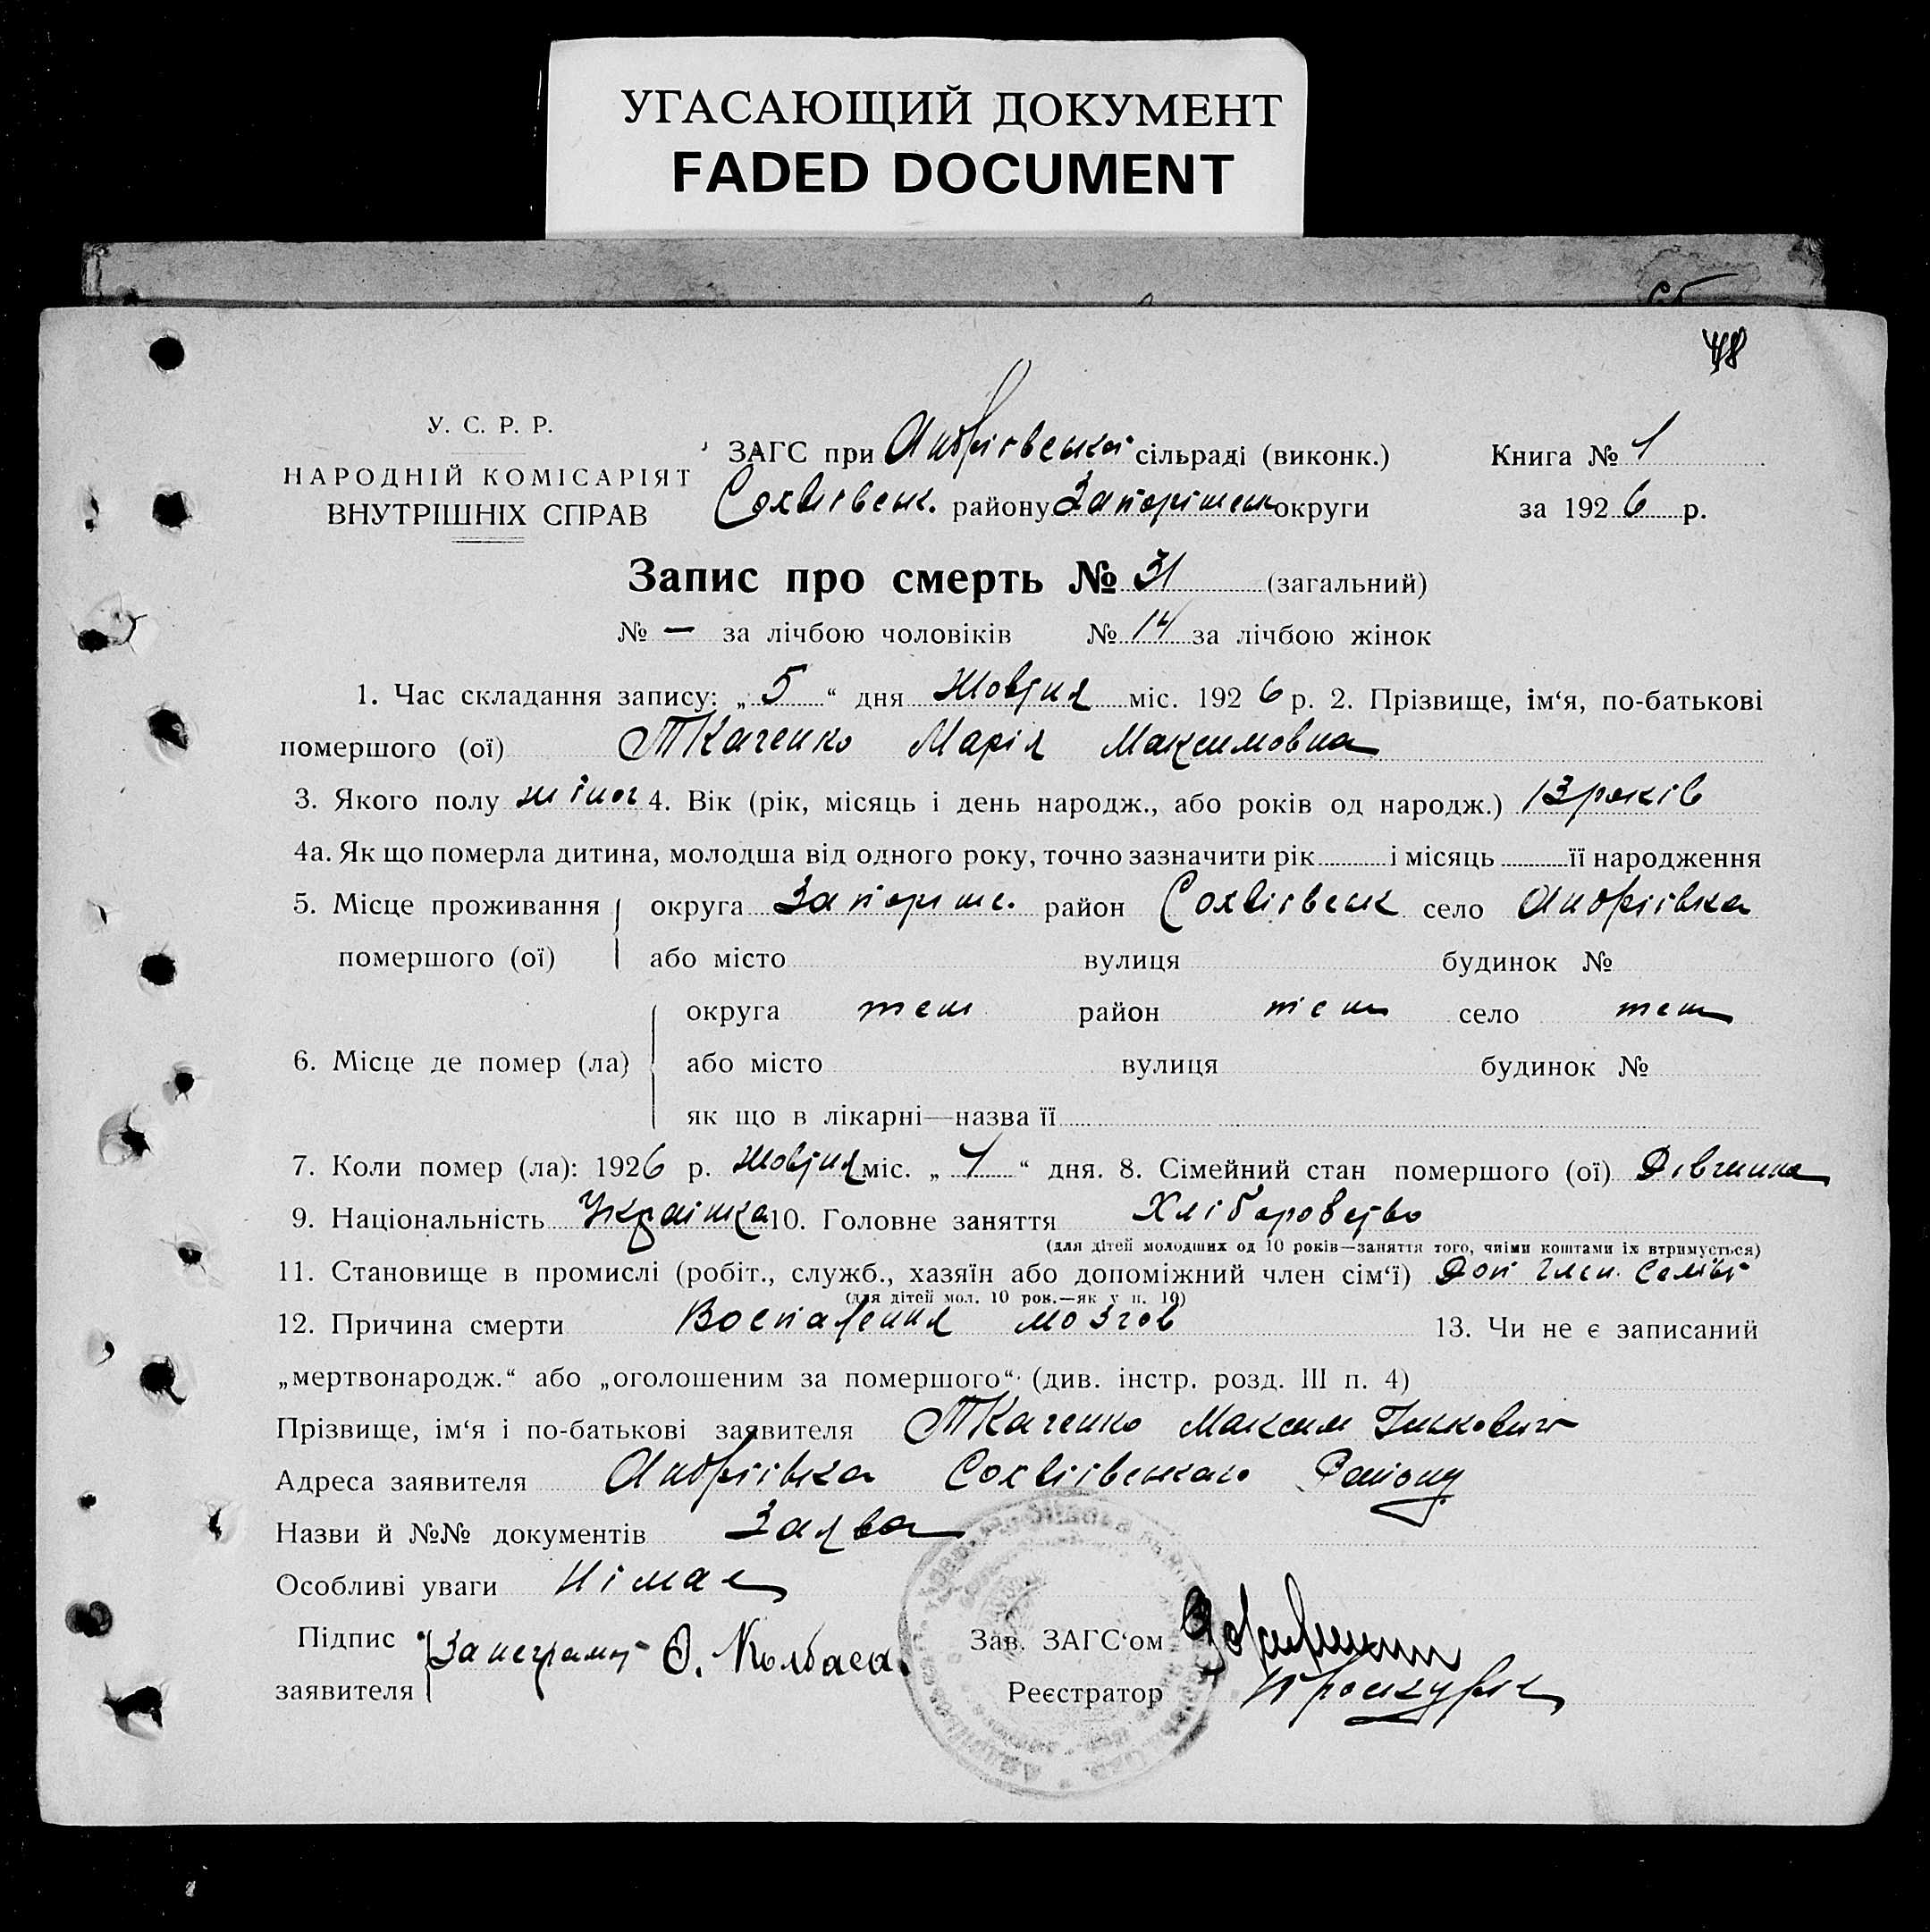 УГАСАЮЩИЙ ДОКУМЕНТ
FADED DOCUMENT
48
У. С. Р. Р.
НАРОДНІЙ КОМІСАРІЯТ
ВНУТРІШНІХ СПРАВ
ЗАГС при Андріївській сільраді (виконк.)
Книга № 1
Софіївськ. району Запоріжськ округи
за 1926 р.
Запис про смерть № 31 (загальний)
№ — за лічбою чоловіків № 14 за лічбою жінок
1. Час складання запису: „5“ дня Жовтня міс. 1926 р. 2. Прізвище, ім‘я, по-батькові
помершого (ої) Ткаченко Марія Максимовна
3. Якого полу жіноч 4. Вік (рік, місяць і день народж., або років од народж.) 13 років
4а. Як що померла дитина, молодша від одного року, точно зазначити рік і місяць її народження
5. Місце проживання округа Запоріж. район Софіївськ село Андріївка
помершого (ої) або місто вулиця будинок №
округа теж район теж село теж
6. Місце де помер (ла) або місто вулиця будинок №
як що в лікарні—назва її
7. Коли помер (ла): 1926 р. Жовтня міс. „1“ дня. 8. Сімейний стан помершого (ої) Дівчина
9. Національність Українка 10. Головне заняття Хліборобство
(для дітей молодших од 10 років—заняття того, чиїми коштами їх втримується)
11. Становище в промислі (робіт., служб., хазяїн або допоміжний член сім‘ї) Доп член. семїї
(для дітей мол. 10 рок.—як у п. 10)
12. Причина смерти Воспаления мозгов 13. Чи не є записаний
„мертвонародж.“ або „оголошеним за помершого“ (див. інстр. розд. III п. 4)
Прізвище, ім‘я і по-батькові заявителя Ткаченко Максим
Адреса заявителя Андріївка Софіївського Району
Назви й №№ документів Заява
Особливі уваги Німає
Підпис заявителя За неграмот О. Колбаса.
Зав. ЗАГС‘ом
Реєстратор Проскурня